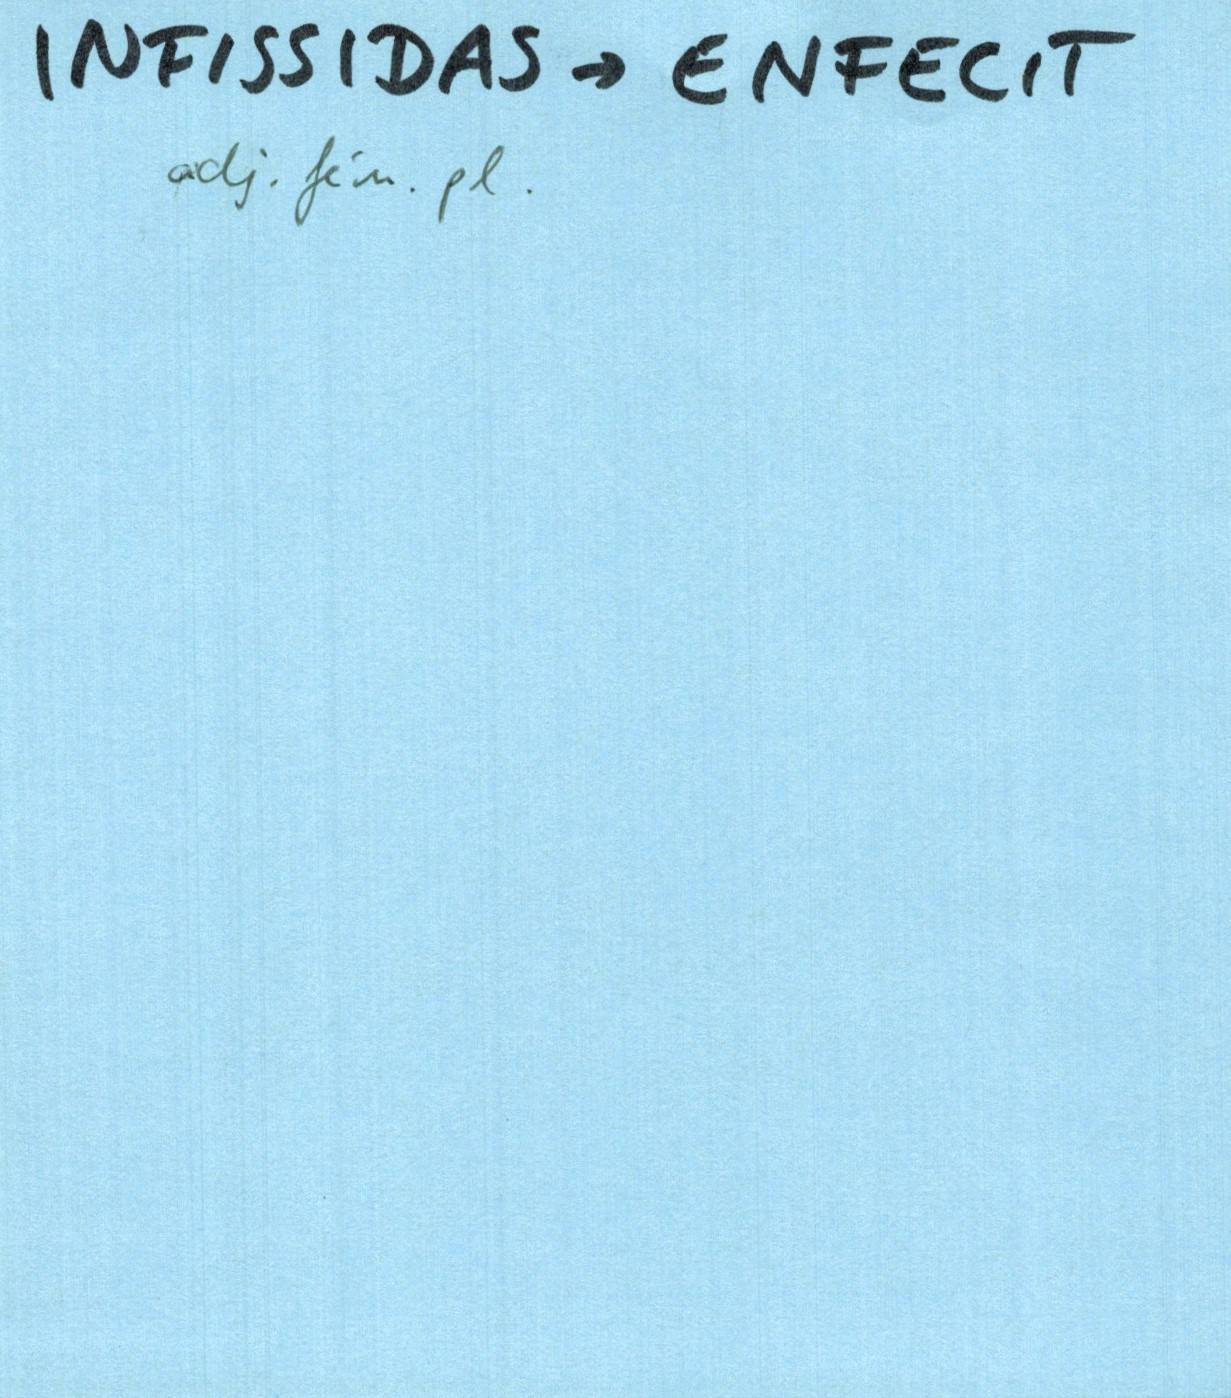 INFISSIDAS → ENFECIT
adj. fém. pl.